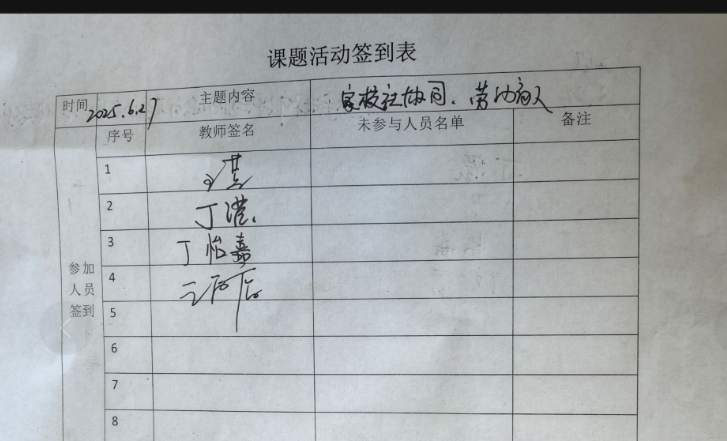 课题活动签到表
时间 2025.6.27 主题内容 家校社协同、劳动育人
序号 教师签名 未参与人员名单 备注
参加人员签到
1
2 丁滟
3 丁怡嘉
4
5
6
7
8